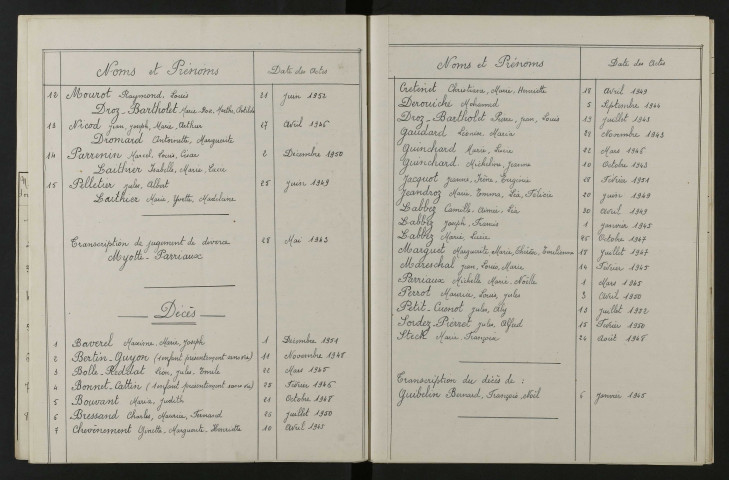 Noms et Prénoms Date des Actes
12 Mourot Raymond, Louis 21 Juin 1952
Droz-Bartholet Marie, Rose, Marthe, Clotilde
13 Nicod Jean, Joseph, Marie, Arthur 27 Avril 1946
Dromard Antoinette, Marguerite
14 Parrenin Marcel, Louis, César 2 Décembre 1950
Laithier Isabelle, Marie, Laure
15 Pelletier Jules, Albert 25 Juin 1949
Laithier Marie, Yvette, Madeleine
Transcription de jugement de divorce 28 Mai 1943
Myotte-Parriaux
Décès
1 Baverel Maxime, Marie, Joseph 1 Décembre 1951
2 Bertin-Guyon (1 enfant présentement sans vie) 11 Novembre 1948
3 Bolle-Reddat Léon, Jules, Emile 22 Mars 1945
4 Bonnet-Cattin (1 enfant présentement sans vie) 25 Février 1946
5 Bouvant Maria, Judith 21 Octobre 1948
6 Bressand Charles, Maurice, Fernand 25 Juillet 1950
7 Chevènement Ginette, Marguerite, Henriette 10 Avril 1945
Noms et Prénoms Date des Actes
Cretenet Christiane, Marie, Henriette 18 Avril 1949
Derouiche Mohamed 5 Septembre 1944
Droz-Bartholet Pierre, Jean, Louis 19 Juillet 1943
Gaudard Léonie, Maria 28 Novembre 1943
Guinchard Marie, Lucie 12 Mars 1946
Guinchard Micheline, Jeanne 10 Octobre 1943
Jacquot Jeanne, Irène, Eugénie 18 Février 1951
Jeandroz Marie, Emma, Léa, Félicie 20 Juin 1949
Labbez Camille, Aimée, Léa 30 Avril 1949
Labbez Joseph, Francis 1 Janvier 1945
Labbez Marie, Lucie 25 Octobre 1947
Marguet Marguerite, Marie, Thérèse, Emilienne 18 Juillet 1947
Mareschal Jean, Louis, Marie 14 Février 1945
Parriaux Michelle, Marie, Noëlle 1 Mars 1945
Perrot Maurice, Louis, Jules 3 Avril 1950
Petit-Cuenot Jules, Ely 13 Juillet 1952
Sordez-Pierrot Jules, Alfred 15 Février 1950
Steck Marie, François 24 Août 1945
Transcription du décès de :
Guibelin Bernard, François, Noël 6 Janvier 1945